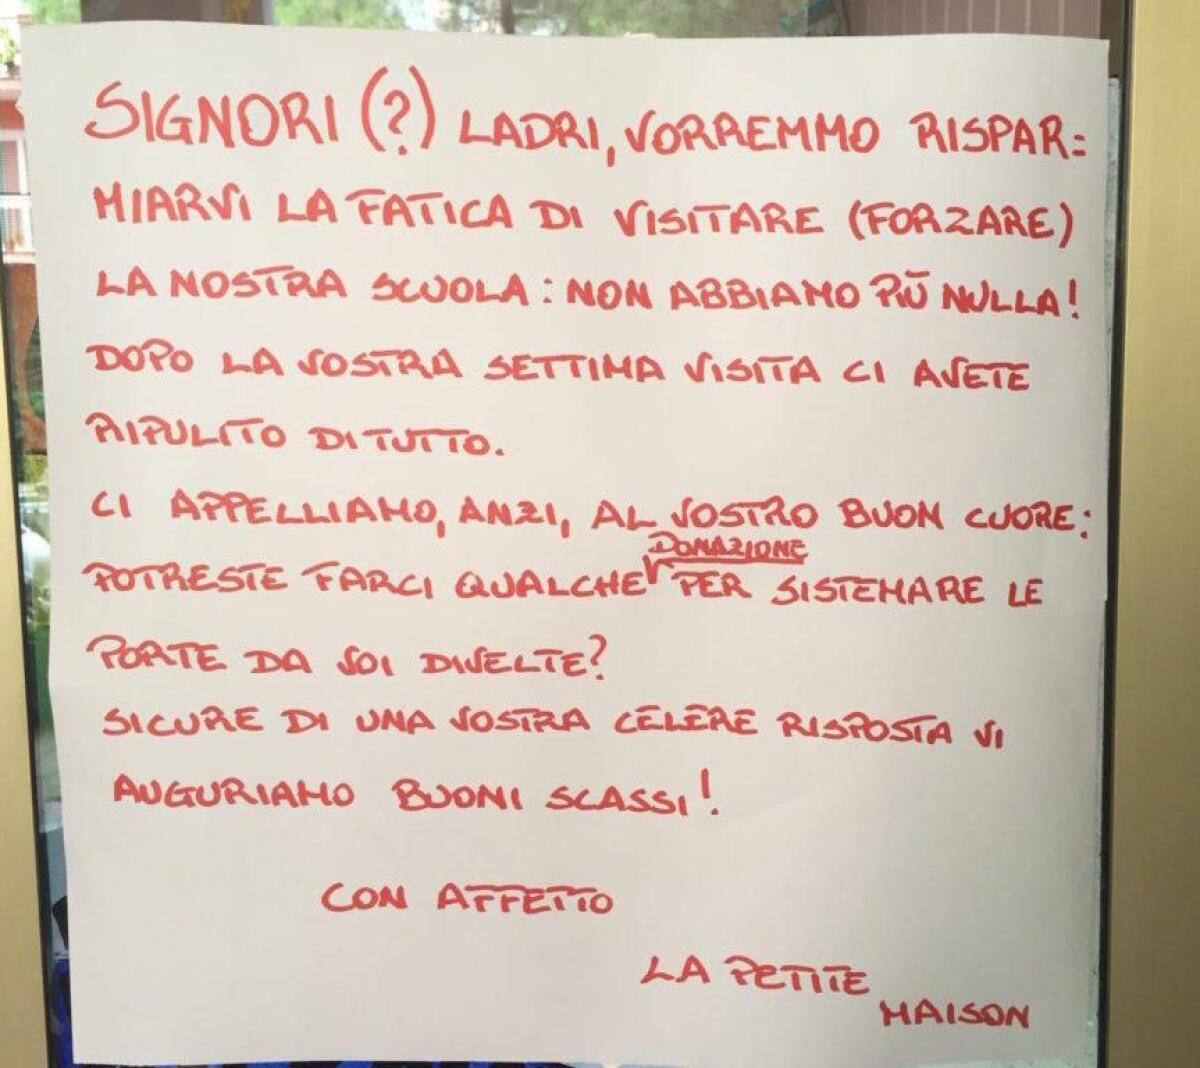 SIGNORI (?) LADRI, VORREMMO RISPAR=
MIARVI LA FATICA DI VISITARE (FORZARE)
LA NOSTRA SCUOLA: NON ABBIAMO PIÙ NULLA!
DOPO LA VOSTRA SETTIMA VISITA CI AVETE
RIPULITO DI TUTTO.
CI APPELLIAMO, ANZI, AL VOSTRO BUON CUORE:
DONAZIONE
POTRESTE FARCI QUALCHE PER SISTEMARE LE
PORTE DA VOI DIVELTE?
SICURE DI UNA VOSTRA CELERE RISPOSTA VI
AUGURIAMO BUONI SCASSI!
CON AFFETTO
LA PETITE
MAISON